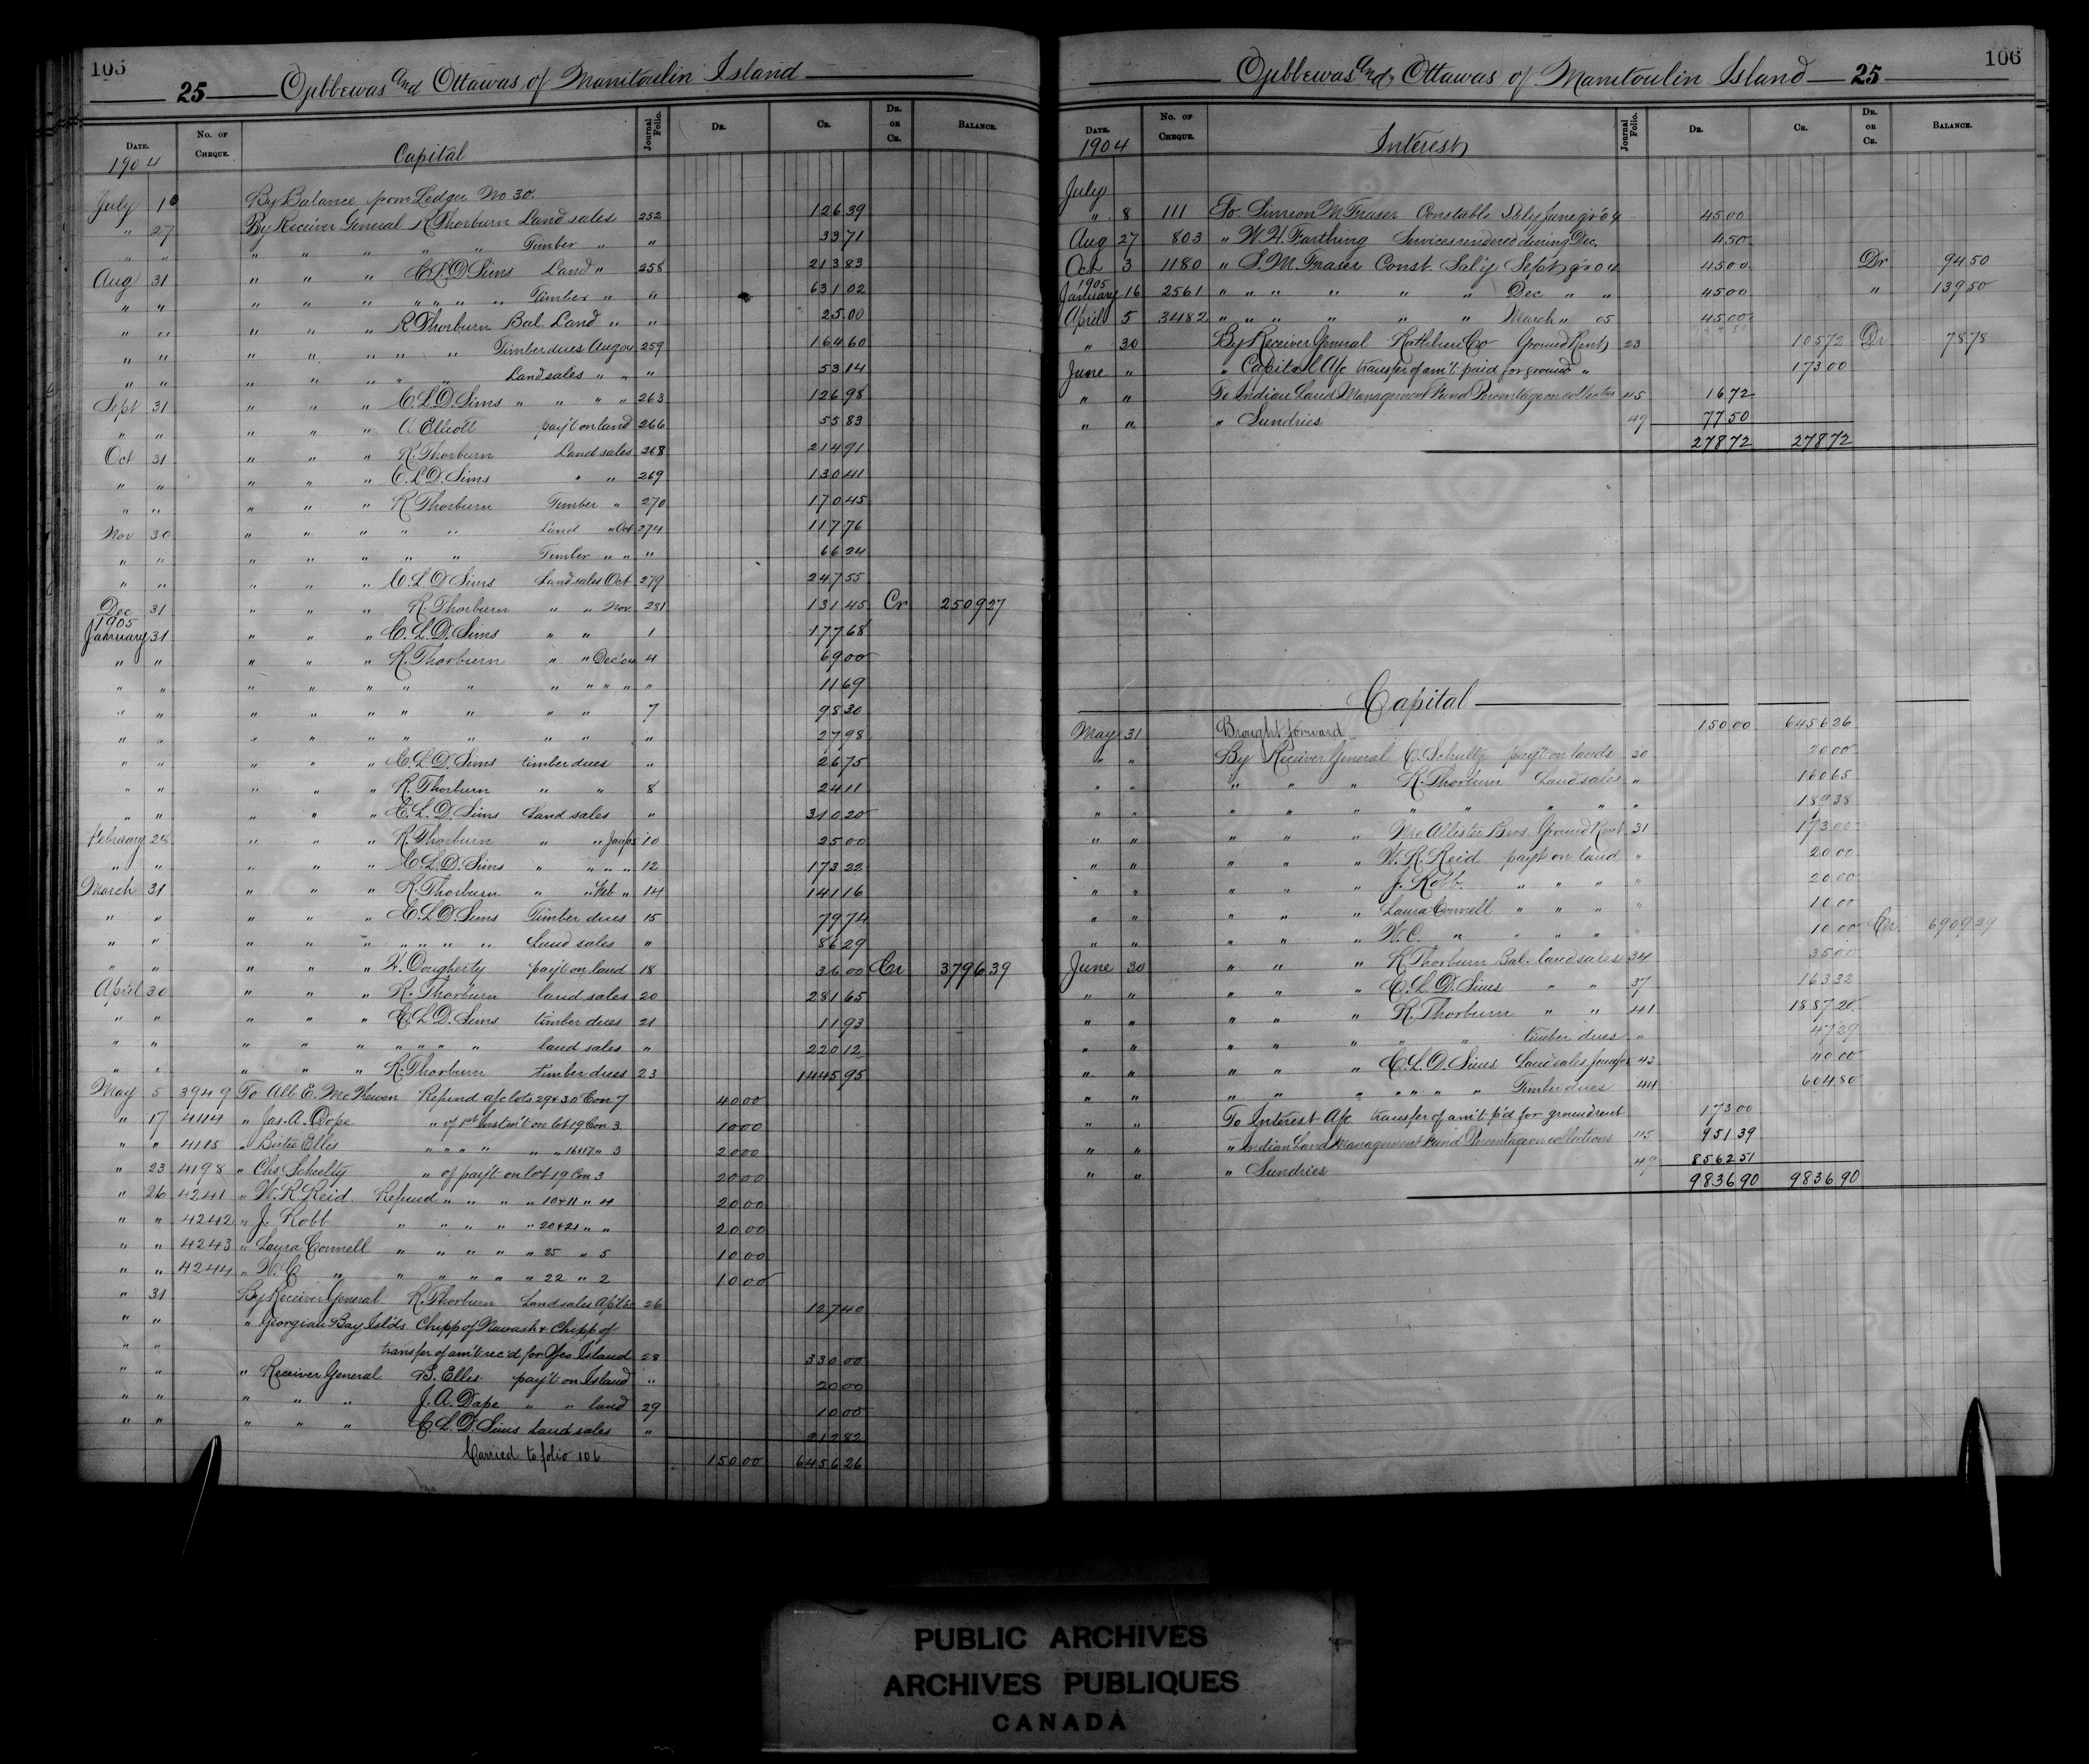 105
25 Ojibbewas and Ottawas of Manitoulin Island
DATE. No. OF CHEQUE. Capital Journal Folio. DR. CR. DR. OR CR. BALANCE.
1904
July 1 By Balance from Ledger No 30.
" 27 By Receiver General R Thorburn Land sales 252 126 39
" " " " " " " Timber " " 33 71
Aug 31 " " " C.L.D. Sims Land " 258 213 83
" " " " " " " " " Timber " " 631 02
" " " " " R Thorburn Bal. Land " " 25 00
" " " " " " " Timber dues Aug 04 259 164 60
" " " " " " " Land sales " " " 53 14
Sept 31 " " " C.L.D. Sims " " " " 263 126 98
" " " " " A Elliott pay't on land 266 55 83
Oct 31 " " " R. Thorburn Land sales 268 214 91
" " " " " C.L.D. Sims " " 269 130 41
" " " " " R Thorburn Timber " 270 170 45
Nov 30 " " " " " Land " Oct 274 117 76
" " " " " " " Timber " " " 66 24
" " " " " C.L.D Sims Land sales Oct 279 247 55
Dec 31 " " " R. Thorburn " " Nov 281 131 45 Cr 2509 27
1905
January 31 " " " C.L.D. Sims " " 1 177 68
" " " " " R. Thorburn " " Dec'04 4 69 00
" " " " " " " " " " " " 11 69
" " " " " " " " " 7 98 30
" " " " " " " " " " 27 98
" " " " " C.L.D. Sims timber dues " 26 75
" " " " " R. Thorburn " " 8 24 11
" " " " " C.L.D. Sims Land sales " 310 20
February 28 " " " R. Thorburn " " Jan/05 10 25 00
" " " " " C.L.D. Sims " " " " 12 173 22
March 31 " " " R. Thorburn " " Feb " 14 141 16
" " " " " C.L.D Sims Timber dues 15 79 74
" " " " " " " " " Land sales " 86 29
" " " " " W. Dougherty pay't on land 18 36 00 Cr 3796 39
April 30 " " " R. Thorburn land sales 20 281 65
" " " " " C.L.D. Sims timber dues 21 11 93
" " " " " " " " " land sales " 220 12
" " " " " R. Thorburn timber dues 23 1445 95
May 5 3949 To Alb. E. McKewen Refund a/c lots 29 & 30 Con 7 40 00
" 17 4114 " Jas. A. Dope " of 1st Instm't on lot 19 Con 3 10 00
" " 4115 " Bertie Elles " " " " " " 16&17 " 3 20 00
" 23 4198 " Chs Schelty " of pay't on lot 19 Con 3 20 00
" 26 4241 " W.R. Reid Refund " " " " 10 & 11 " 4 20 00
" " 4242 " J. Robb " " " " " 20 & 21 " " 20 00
" " 4243 " Laura Connell " " " " " 25 " 5 10 00
" " 4244 " W.C " " " " " " 22 " 2 10 00
" 31 By Receiver General R. Thorburn Land sales Apl'05 26 127 40
" " " Georgian Bay Isl'ds Chipp of Nawash & Chipp of
" " transfer of am't rec'd for Yeo Island 28 330 00
" " " Receiver General B. Elles pay't on Island " 20 00
" " " " " J.A. Dape " " land 29 10 00
" " " " " C.L.D. Sims Land sales " 212 82
Carried to folio 106 150 00 6456 26
106
Ojibbewas and Ottawas of Manitoulin Island 25
DATE. No. OF CHEQUE. Interest Journal Folio. DR. CR. DR. OR CR. BALANCE.
1904
July
" 8 111 To Simeon M Fraser Constable Sal'y June qr 04 45 00
Aug 27 803 " W.H. Farthing Services rendered during Dec. 4 50
Oct 3 1180 " S.M. Fraser Const. Sal'y Sept qr 04 45 00 Dr 94 50
1905
January 16 2561 " " " " " " Dec " " 45 00 " 139 50
April 5 3482 " " " " " " March " 05 45 00
" 30 By Receiver General Rathbun Co Ground Rent 23 105 72 Dr 78 78
June " " Capital A/c transfer of am't paid for ground " 173 00
" " To Indian Land Management Fund Percentage on collections 45 16 72
" " " Sundries 49 77 50
278 72 278 72
Capital
May 31 Brought forward 150 00 6456 26
" " By Receiver General C. Schultz pay't on lands 30 20 00
" " " " " R. Thorburn Land sales " 160 65
" " " " " " " " " " 189 38
" " " " " McAllister Bros. Ground Rent 31 173 00
" " " " " W.R. Reid pay't on land " 20 00
" " " " " J. Robb " " " " 20 00
" " " " " Laura Connell " " " " 10 00
" " " " " W.C. " " " " " 10 00 Cr 6909 29
June 30 " " " R Thorburn Bal. land sales 34 35 00
" " " " " C.L.D. Sims " " 37 163 32
" " " " " R. Thorburn " " 41 1887 20
" " " " " " " timber dues " 47 29
" " " " " C.L.D. Sims Land sales June/05 43 40 00
" " " " " " " " " Timber dues 44 604 80
" " To Interest A/c transfer of am't p'd for ground rent 173 00
" " " Indian Land Management Fund Percentage on collections 45 951 39
" " " Sundries 49 8562 51
9836 90 9836 90
PUBLIC ARCHIVES
ARCHIVES PUBLIQUES
CANADA